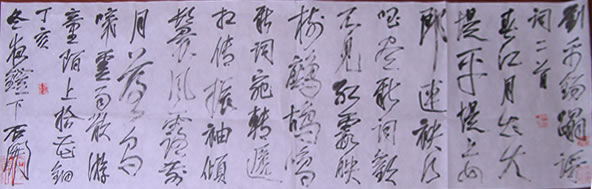 劉禹錫蹋歌
词二首
春江月出大
堤平堤上女
郎連袂行
唱盡新词歡
不見紅霞映
樹鷓鴣鳴
新词宛轉遞
相傳振袖傾
鬟風露前
月落烏
啼雲雨散游
童陌上拾花鈿
丁亥
冬夜燈下